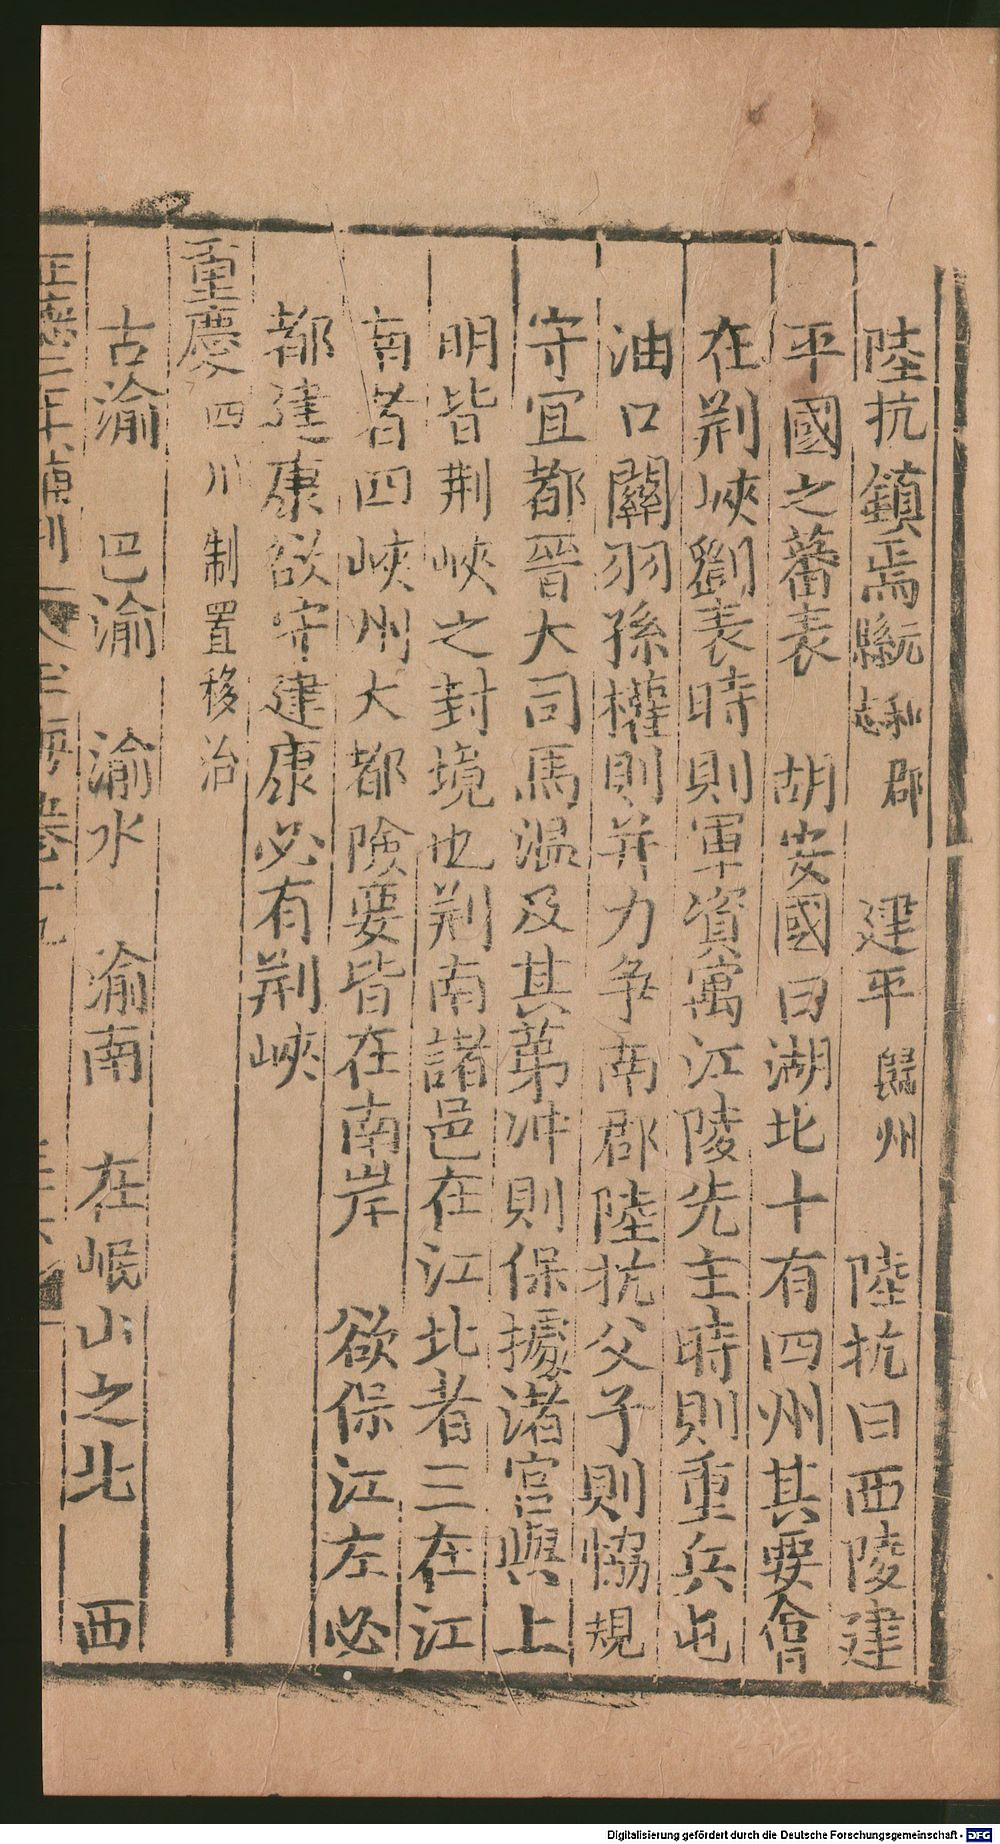 陸抗鎮焉縣元和郡志　建平歸州　陸抗曰西陵建
平國之蕃表　胡安國曰湖北十有四州其要會
在荆峽劉表時則軍資寓江陵先主時則重兵屯
油口關羽孫權則并力争南郡陸抗父子則恊規
守宜都晉大司馬温及其苐冲則保據渚宫與上
明皆荆峽之封境也荆南諸邑在江北者三在江
南者四峽州大都險要皆在南岸　欲保江左必
都建康欲守建康必有荆峽
重慶四川制置移治
古渝　巴渝　渝水　渝南　在岷山之北　西
正德二年慎刊　玉海卷十九
Digitalisierung gefördert durch die Deutsche Forschungsgemeinschaft - DFG